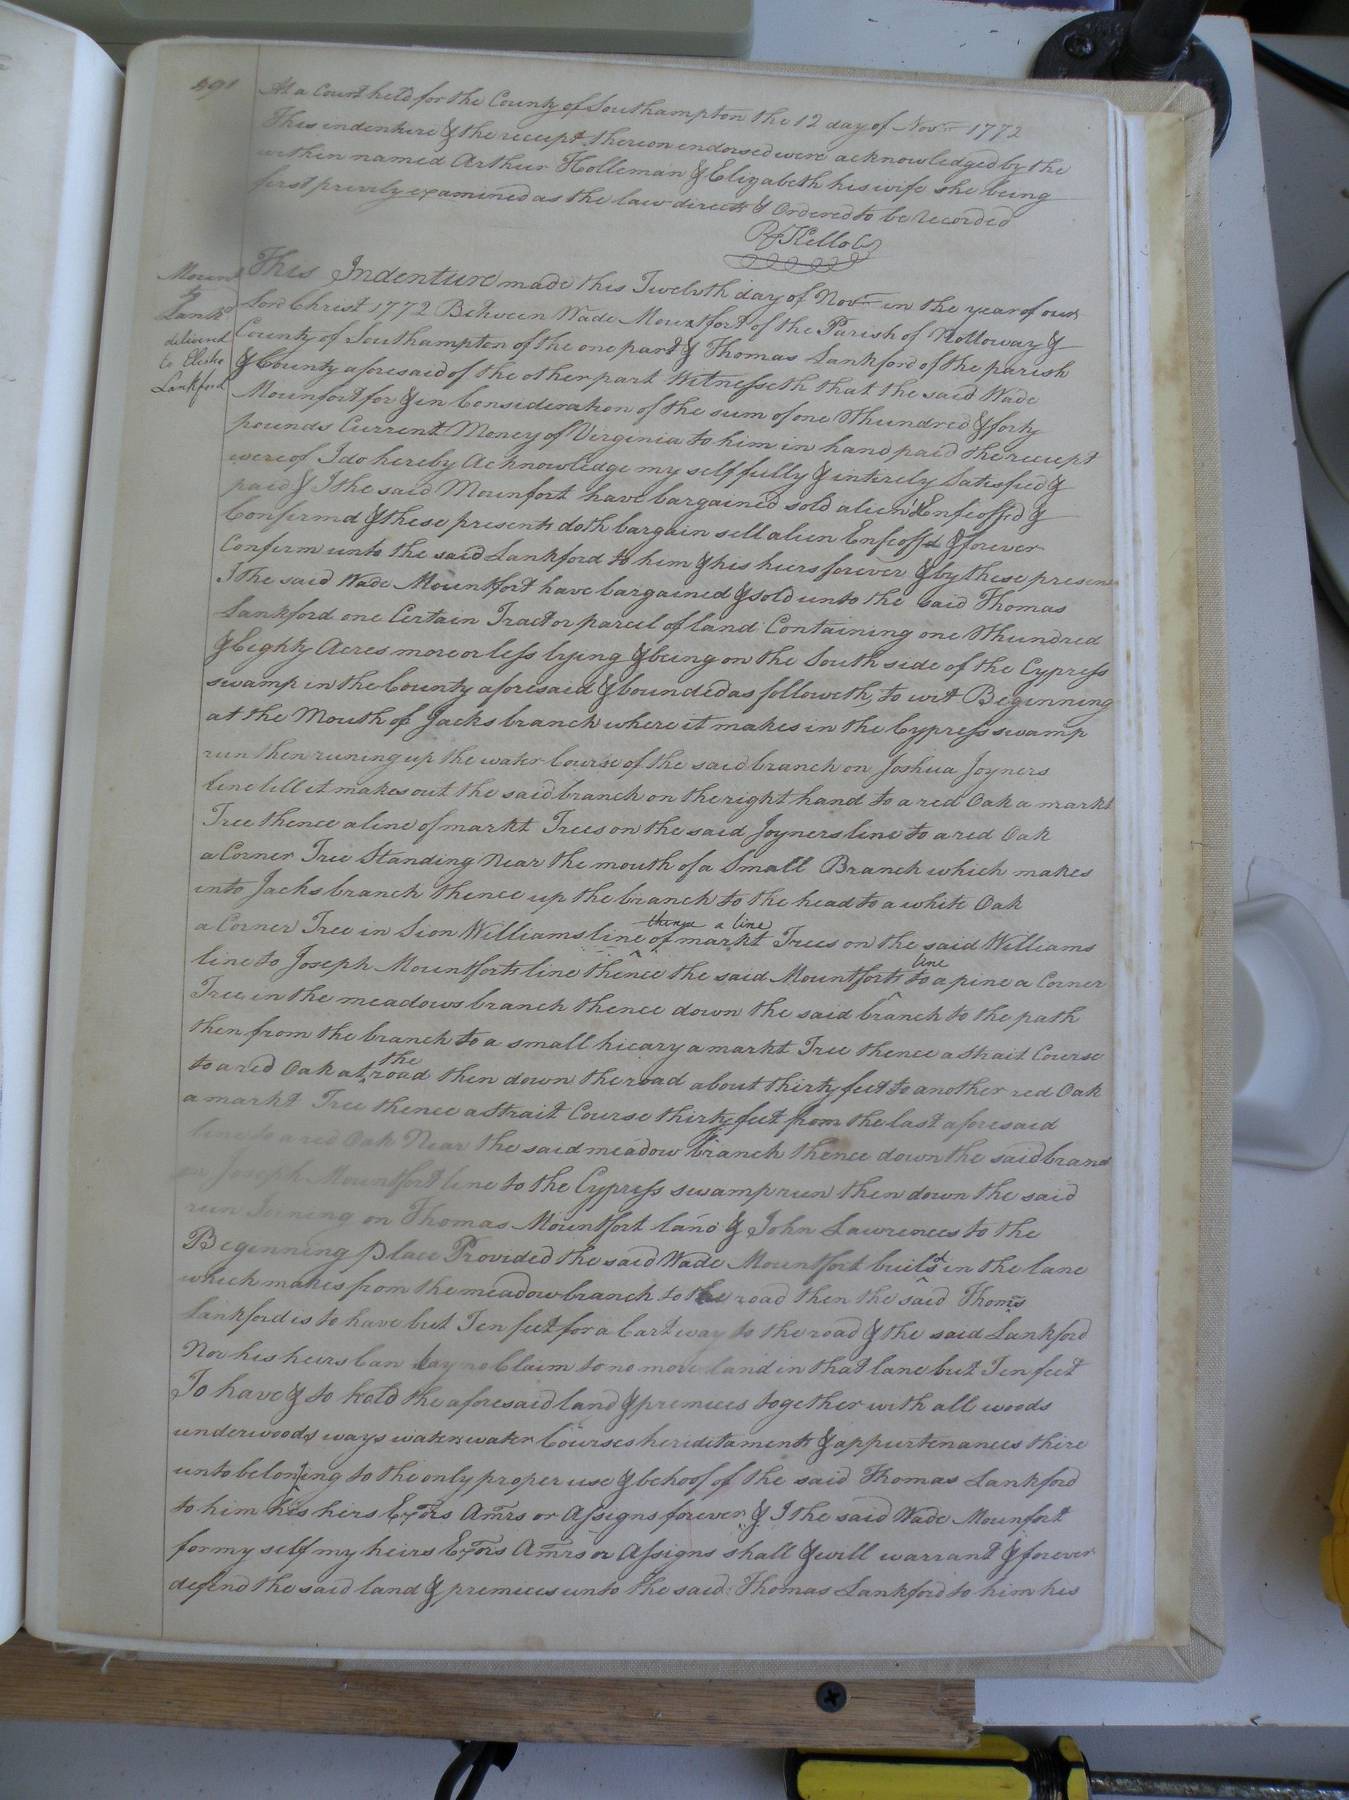 491
At a Court held for the County of Southampton the 12 day of Novr 1772
This indenture & the receipt thereon endorsed were acknowledged by the
within named Arthur Holleman & Elizabeth his wife she being
first previly examined as the law directs & Ordered to be Recorded
R Kello C
Mount
to
Lankd
deliverd
to Elisha
Lankford
This Indenture made this Twelvth day of Novr in the year of our
Lord Christ 1772 Between Wade Mountfort of the Parish of Notloway &
County of Southampton of the one part & Thomas Lankford of the parish
& County aforesaid of the other part Witnesseth that the said Wade
Mounfort for & in Consideration of the sum of one Hhundred & forty
pounds Current Money of Virginia to him in hand paid the receipt
were of I do hereby Acknowledge my self fully & intirely Satisfied &
paid & I the said Mounfort have bargained sold alien'd Enfeoffd &
Confirmd & these presents doth bargain sell alien Enfeoff & forever
Confirm unto the said Lankford to him & his heirs forever & by these presents
I the said Wade Mountfort have bargained & sold unto the said Thomas
Lankford one Certain Tract or parcel of land Containing one Hhundred
& Eighty Acres more or less lying & being on the South side of the Cypress
swamp in the County aforesaid & bounded as followeth, to wit Beginning
at the Mouth of Jacks branch where it makes in the Cypress swamp
run then runing up the water Course of the said branch on Joshua Joyners
line till it makes out the said branch on the right hand to a red Oak a markt
Tree thence a line of markt Trees on the said Joyners line to a red Oak
a Corner Tree Standing Near the mouth of a Small Branch which makes
into Jacks branch thence up the branch to the head to a white Oak
thence a line
a Corner Tree in Sion Williams line of markt Trees on the said Williams
line
line to Joseph Mountforts line thence the said Mountforts to a pine a Corner
Tree in the meadows branch thence down the said branch to the path
then from the branch to a small hicary a markt Tree thence a strait Course
the
to a red Oak at road then down the road about thirty feet to another red Oak
a markt Tree thence a strait Course thirty feet from the last aforesaid
line to a red Oak Near the said meadow branch thence down the said branch
on Joseph Mountfort line to the Cypress swamp run then down the said
run Joining on Thomas Mountfort land & John Lawrences to the
Beginning place Provided the said Wade Mountfort builds in the lane
which makes from the meadow branch to the road then the said Thoms
Lankford is to have but Ten feet for a Cart way to the road & the said Lankford
Nor his heirs Can lay no Claim to no more land in that lane but Ten feet
To have & to hold the aforesaid land & premices together with all woods
underwoods ways waters water Courses hereditaments & appurtenances there
unto belonging to the only proper use & behoof of the said Thomas Lankford
to him his heirs Exors Amrs or Assigns forever & I the said Wade Mounfort
for my self my heirs Exors Amrs or Assigns shall & will warrant & forever
defend the said land & premices unto the said Thomas Lankford to him his